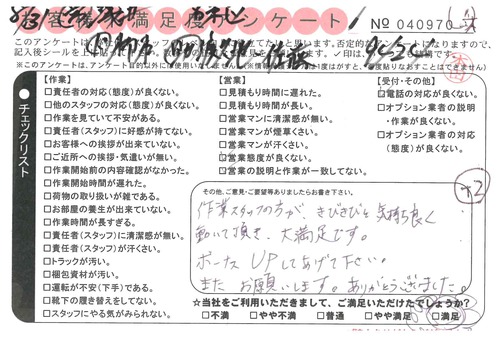 お客様満足度アンケート
No 040970
このアンケートは
※このアンケートは、アンケート目的以外には使用いたしません。
チェックリスト
【作業】
□責任者の対応(態度)が良くない。
□他のスタッフの対応(態度)が良くない。
□作業を見ていて不安がある。
□責任者(スタッフ)に好感が持てない。
□お客様への挨拶が出来ていない。
□ご近所への挨拶・気遣いが無い。
□作業開始前の内容確認がなかった。
□作業開始時間が遅れた。
□荷物の取り扱いが雑である。
□お部屋の養生が出来ていない。
□作業時間が長すぎる。
□責任者(スタッフ)に清潔感が無い。
□責任者(スタッフ)が汗くさい。
□トラックが汚い。
□梱包資材が汚い。
□運転が不安(下手)である。
□靴下の履き替えをしてない。
□スタッフにやる気がみられない。
【営業】
□見積もり時間に遅れた。
□見積もり時間が長い。
□営業マンに清潔感が無い。
□営業マンが煙草くさい。
□営業マンが汗くさい。
□営業態度が良くない。
□営業の説明と作業が一致してない。
【受付・その他】
□電話の対応が良くない。
□オプション業者の説明・作業が良くない。
□オプション業者の対応(態度)が良くない。
その他、ご意見・ご要望等ありましたらお書き下さい。
作業スタッフの方が、きびきびと気持ち良く
動いて頂き、大満足です。
ボーナスUPしてあげて下さい。
またお願いします。ありがとうございました。
+2
☆当社をご利用いただきまして、ご満足いただけたでしょうか?
□不満 □やや不満 □普通 □やや満足 □満足